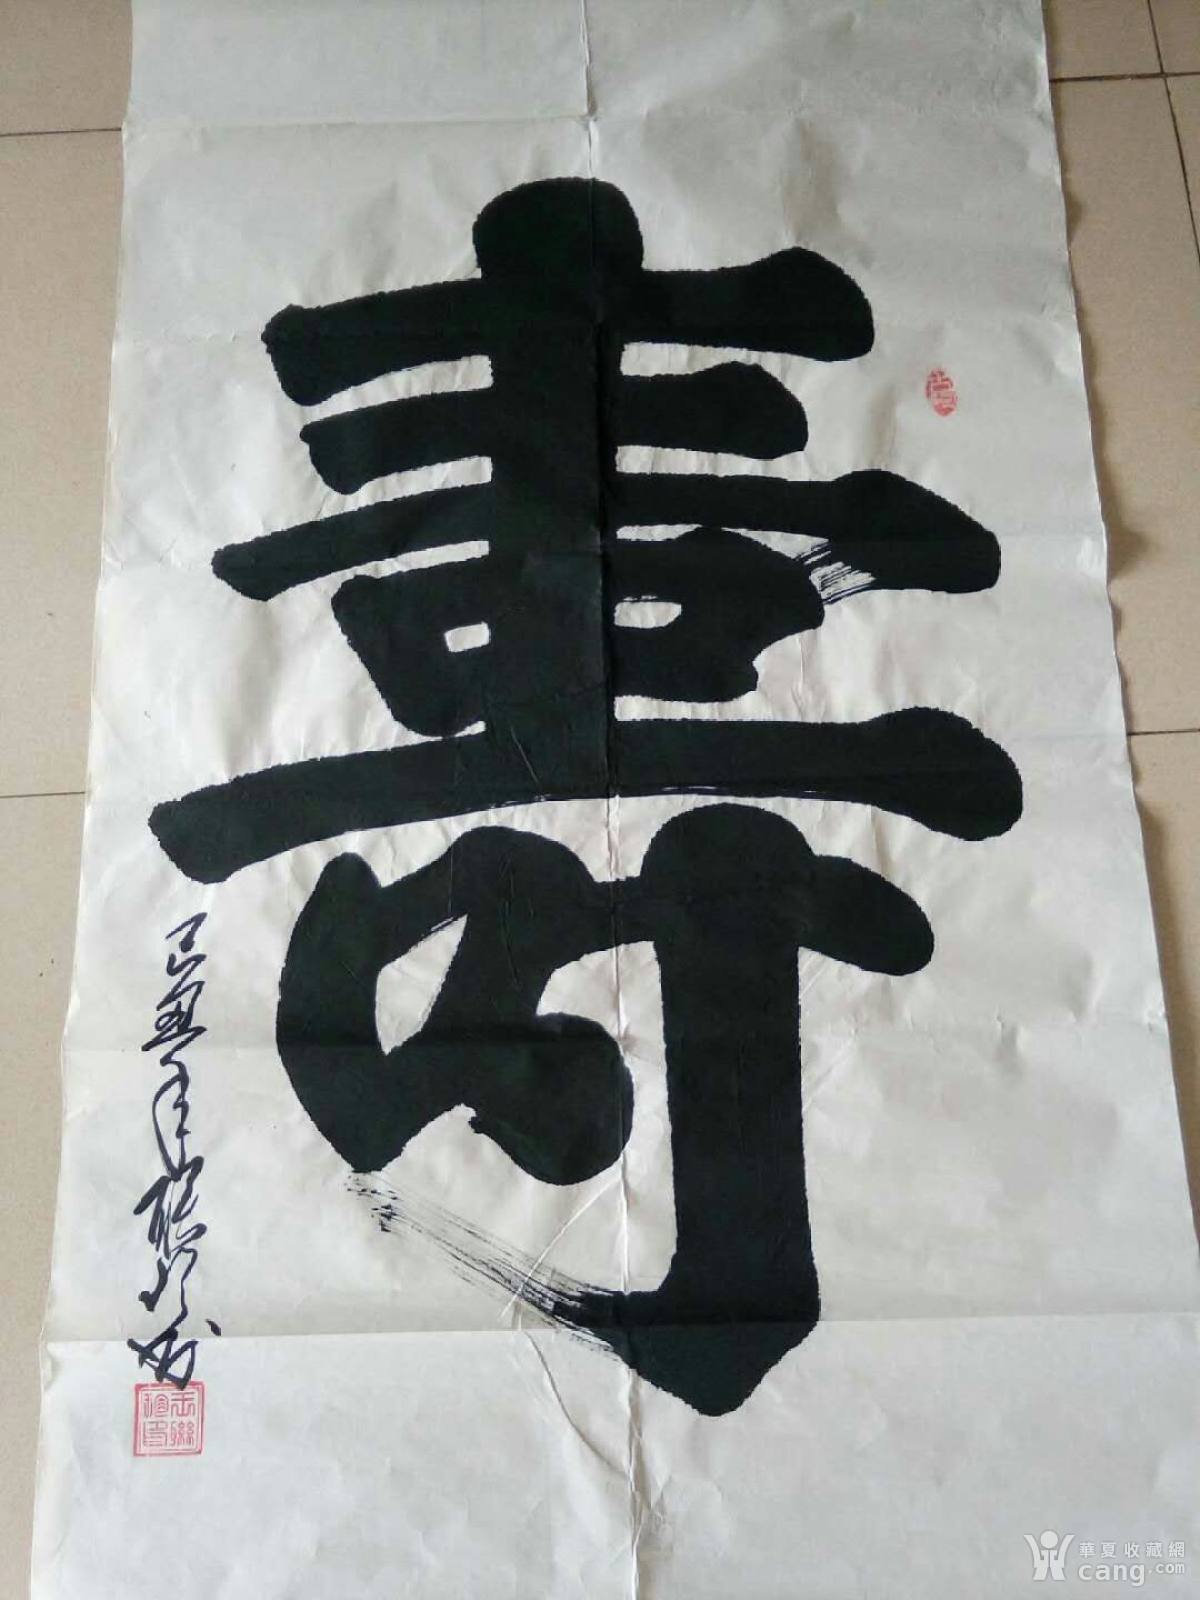 壽
己丑年聯珍書
華夏收藏網
cang.com